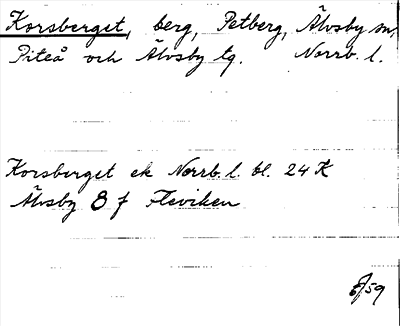 Korsberget, berg, Petberg, Älvsby sn,
Piteå och Älvsby tg. Norrb. l.
Korsberget ek Norrb. l. bl. 24 K
Älvsby 8 f Fleviken
59